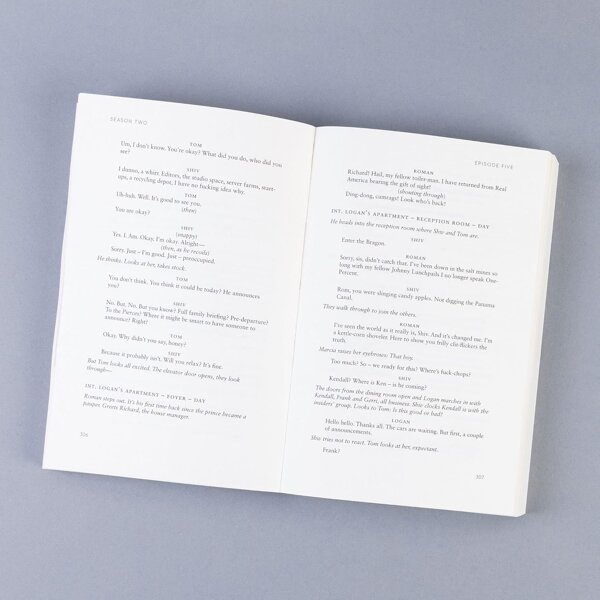 SEASON TWO
TOM
Um, I don't know. You're okay? What did you do, who did you
see?
SHIV
I dunno, a whirl. Editors, the studio space, server farms, start-
ups, a recycling depot, I have no fucking idea why.
TOM
Uh-huh. Well. It's good to see you.
(then)
You are okay?
SHIV
(snappy)
Yes. I. Am. Okay. I'm okay. Alright—
(then, as he recoils)
Sorry. Just – I'm good. Just – preoccupied.
He thinks. Looks at her, takes stock.
TOM
You don't think. You think it could be today? He announces
you?
SHIV
No. But. No. But you know? Full family briefing? Pre-departure?
To the Pierces? Where it might be smart to have someone to
announce? Right?
TOM
Okay. Why didn't you say, honey?
SHIV
Because it probably isn't. Will you relax? It's fine.
But Tom looks all excited. The elevator door opens, they look
through—
INT. LOGAN'S APARTMENT – FOYER – DAY
Roman steps out. It's his first time back since the prince became a
pauper. Greets Richard, the house manager.
306
EPISODE FIVE
ROMAN
Richard! Hail, my fellow toiler-man. I have returned from Real
America bearing the gift of sight!
(shouting through)
Ding-dong, cumrags! Look who's back!
INT. LOGAN'S APARTMENT – RECEPTION ROOM – DAY
He heads into the reception room where Shiv and Tom are.
SHIV
Enter the Bragon.
ROMAN
Sorry, sis, didn't catch that. I've been down in the salt mines so
long with my fellow Johnny Lunchpails I no longer speak One-
Percent.
SHIV
Rom, you were slinging candy apples. Not digging the Panama
Canal.
They walk through to join the others.
ROMAN
I've seen the world as it really is, Shiv. And it's changed me. I'm
a kettle-corn shoveler. Here to show you frilly clit-flickers the
truth.
Marcia raises her eyebrows: That boy.
Too much? So – we ready for this? Where's fuck-chops?
SHIV
Kendall? Where is Ken – is he coming?
The doors from the dining room open and Logan marches in with
Kendall, Frank and Gerri, all business. Shiv clocks Kendall is with the
insiders' group. Looks to Tom: Is this good or bad?
LOGAN
Hello hello. Thanks all. The cars are waiting. But first, a couple
of announcements.
Shiv tries not to react. Tom looks at her, expectant.
Frank?
307